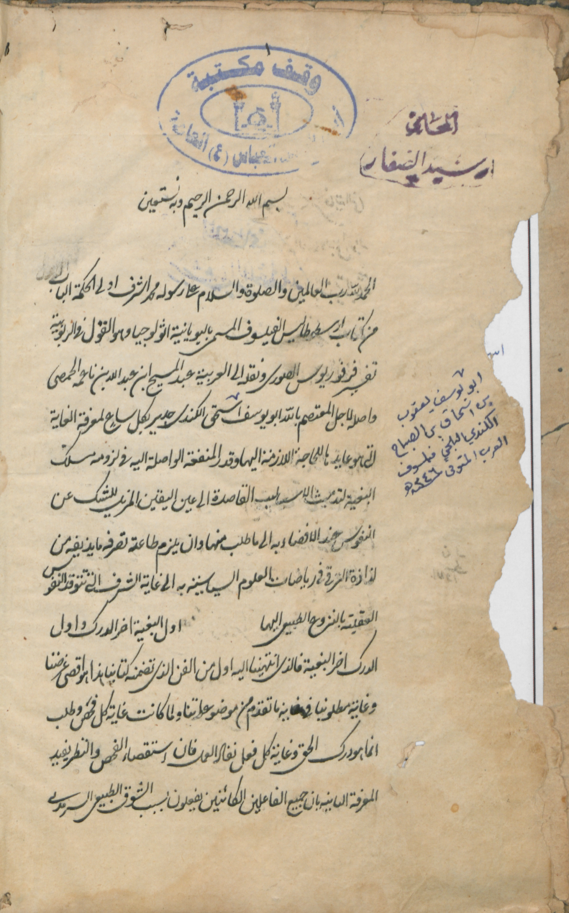 وقف مكتبة
العباس (ع) العامة
المحامي
رشيد الصفار
بسم الله الرحمن الرحيم وبه نستعين
الحمد لله رب العالمين والصلوة والسلام على رسوله محمد اشرف اولى الحكمة الباب الاول
من كتاب ارسطاطاليس الفيلسوف المسمى باليونانية اثولوجيا وهو القول في الربوبية
تفسير فرفوريوس الصورى ونقله الى العربية عبد المسيح ابن عبد الله بن ناعمة الحمصى
واصلحه لاجل المعتصم بالله ابو يوسف يعقوب بن اسحق الكندى جدير بكل ساع لمعرفة الغاية
التى هو عامدها للحاجة اللازمة اليها وقدر المنفعة الواصلة اليه فى لزومه مسلك
البغية لتدميث الاسلوب القاصدة الى عين اليقين المزيل للشك عن
النفوس عند الافضاء به الى ما طلب منها وان يلزم طاعة تصرفه ما يذيقه من
لذاذة الترقى فى رياضات العلوم السياسية به الى غاية الشرف التى تتوق النفوس
العقلية بالنزوع الطبيعى اليها اول البغية اخر الدرك واول
الدرك اخر البغية فالذى انتهينا اليه اول من الفن الذى تضمنه كتابنا هذا هو اقصى غرضنا
وغاية مطلوبنا فى عامة ما تقدم من موضوعاتنا ولما كانت غاية كل فحص وطلب
انما هو درك الحق وغاية كل فعل نفاذ العمل فان استقصاء الفحص والنظر يفيد
المعرفة الثابتة بان جميع الفاعلين الكائنين يفعلون بسبب الشوق الطبيعى السرمدى
ابو يوسف يعقوب
بن اسحاق بن الصباح
الكندي فيلسوف
العرب المتوفى ٢٤٦ هـ